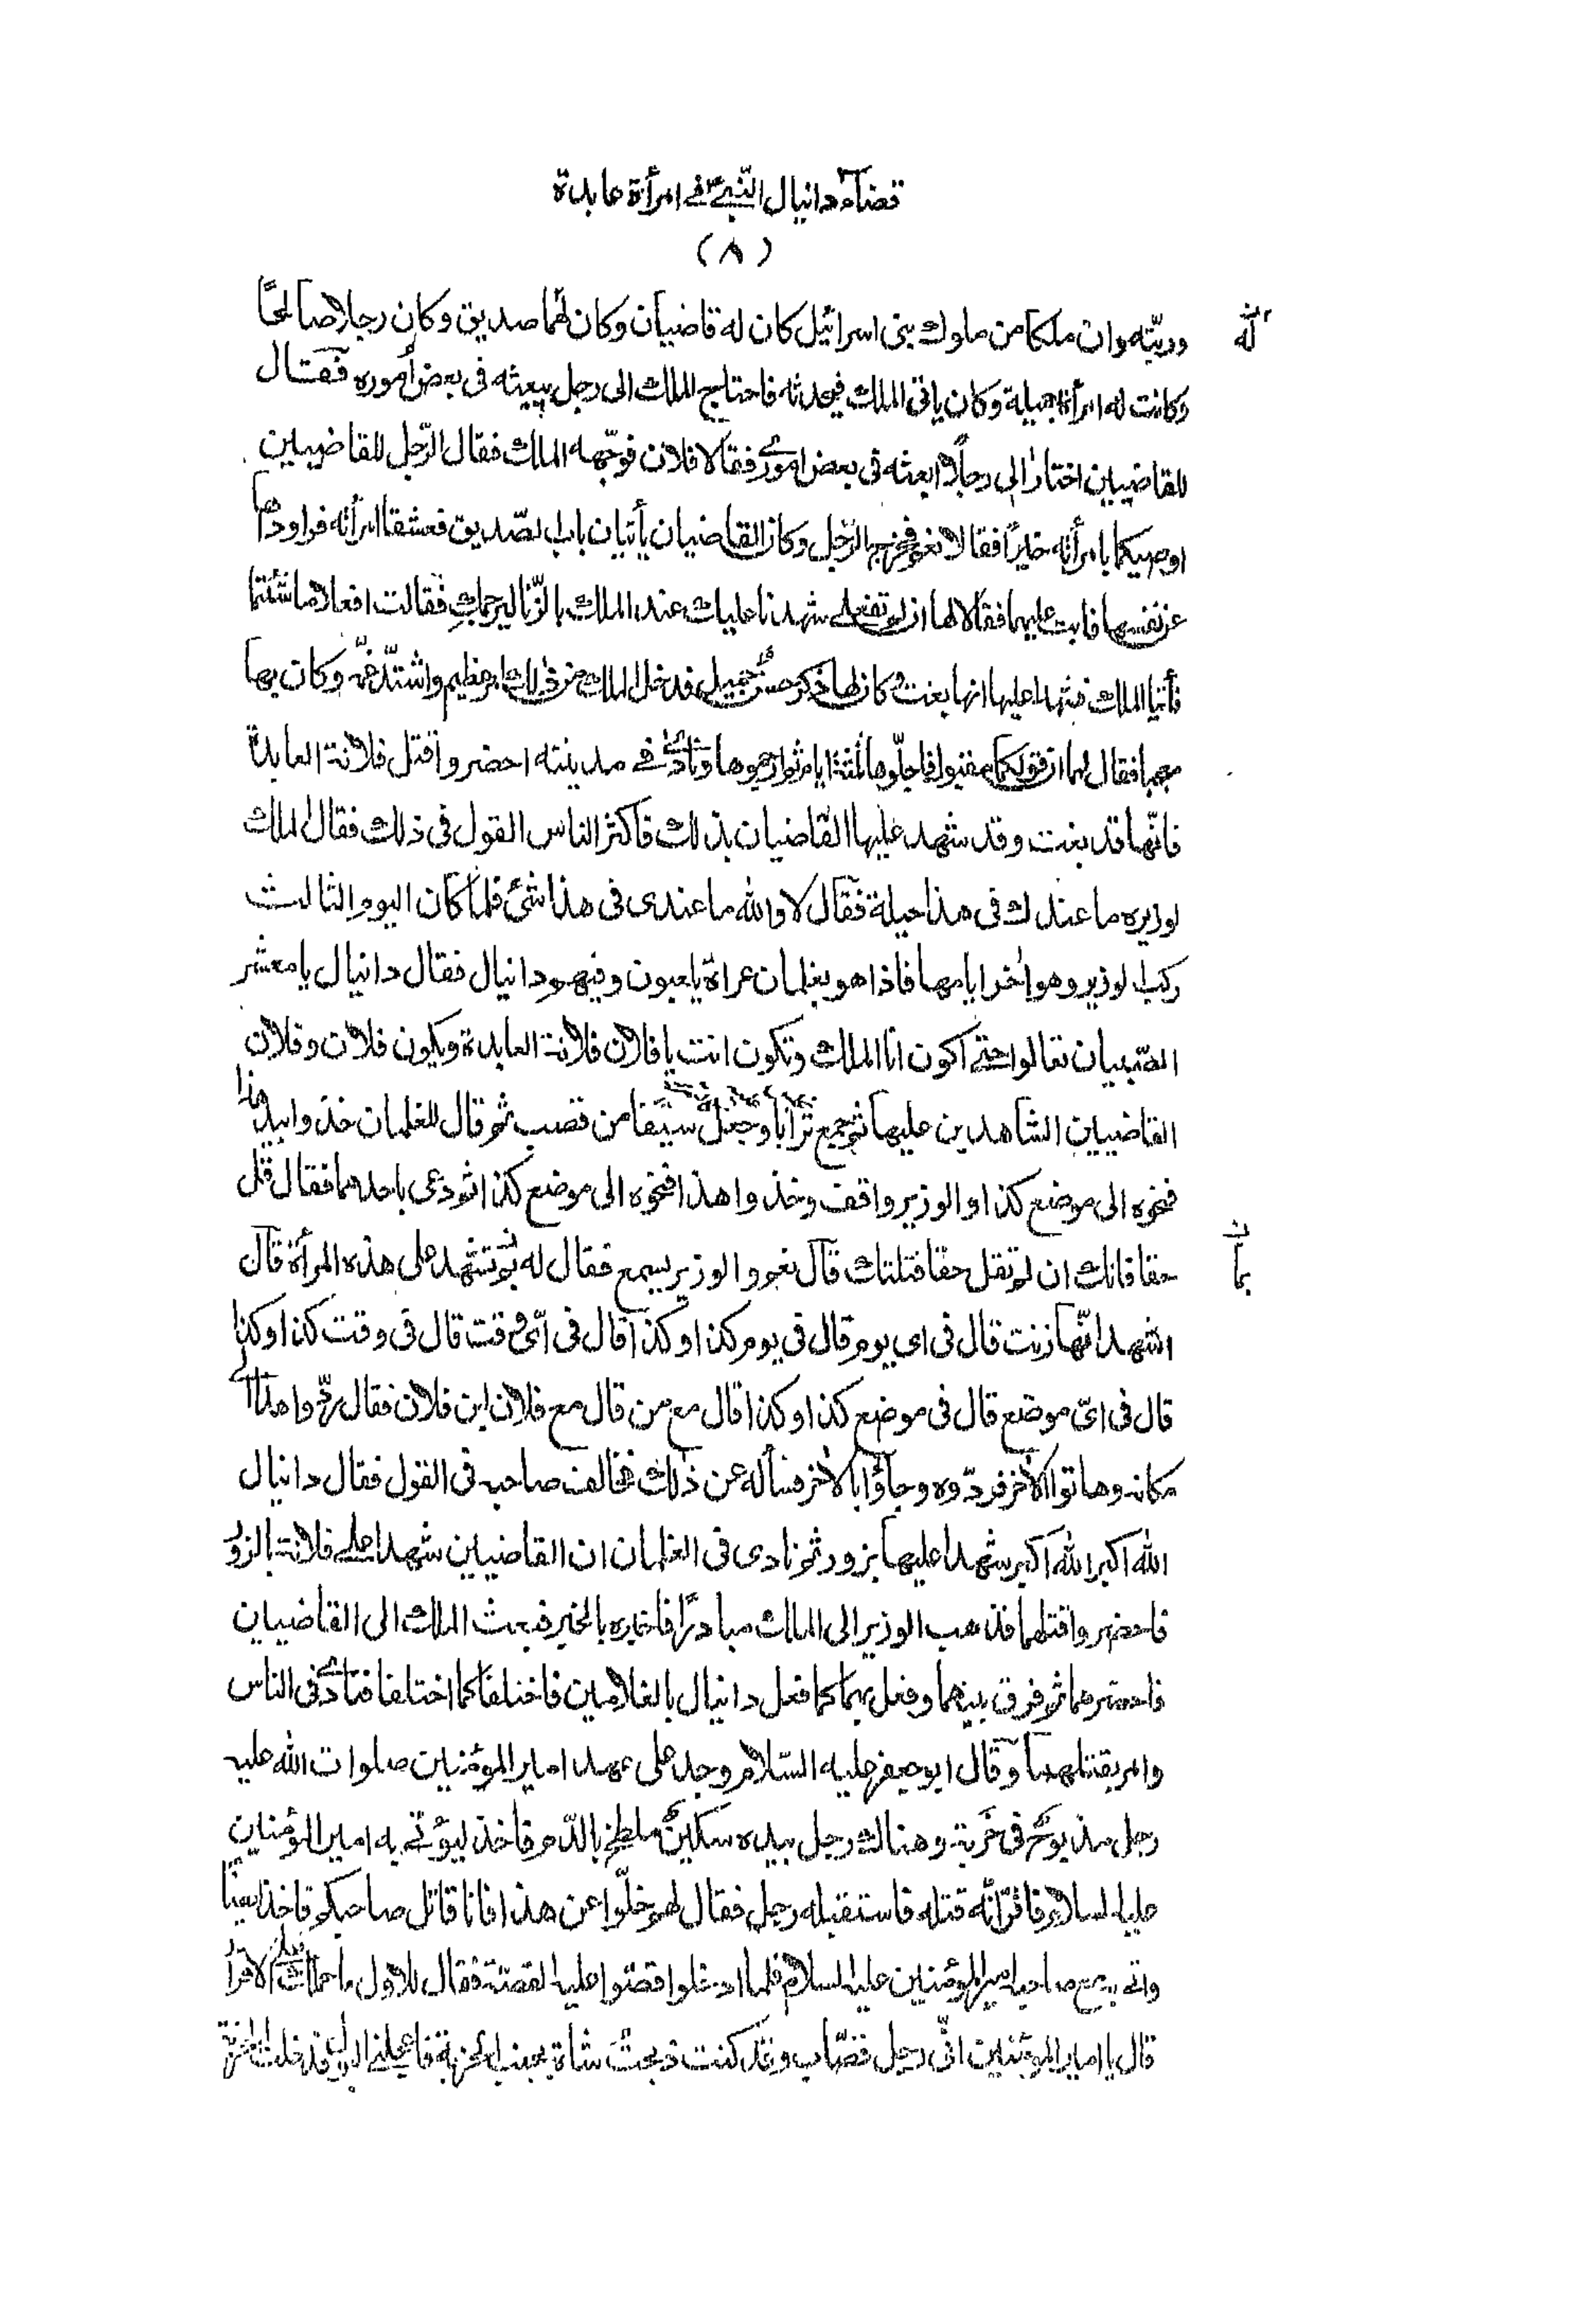 قضاء دانيال النّبىّ فے امرأة عابدة
(٨)
وربّته وان ملكا من ملوك بنى اسرائيل كان له قاضيان وكان لهما صديق وكان رجلا صالحًا
له
وكانت له امرأة جميلة وكان ياتى الملك فيحدثه فاحتاج الملك الى رجل يبعثه فى بعض أموره فقال
للقاضيين اختارا لى رجلًا ابعثه فى بعض امورى فقالا فلان فوجّهه الملك فقال الرّجل للقاضيين
اوصيكما بامرأته خيرًا فقالا نعم فخرج الرّجل وكان القاضيان يأتيان باب الصّديق فعشقا امرأته فراوداها
عن نفسها فابت عليهما فقالا لها ان لم تفعلى شهدنا عليك عند الملك بالزّنا ليرجمك فقالت افعلا ما شئتما
فأتيا الملك فشهدا عليها انها بغت وكان لها ذكر حسن جميل فدخل الملك من ذلك امر عظيم واشتدّ غمّه وكان بها
معجبا فقال لهما ان قولكما مقبول فاجلّوها ثلثة ايام ثم ارجموها ونادى فے مدينته احضروا قتل فلانة العابدة
فانّها قد بغت وقد شهد عليها القاضيان بذلك فاكثر الناس القول فى ذلك فقال الملك
لوزيره ما عندك فى هذا حيلة فقال لا والله ما عندى فى هذا شئ فلما كان اليوم الثالث
ركب الوزير وهو اخر ايامها فاذا هو بغلمان عراة يلعبون وفيهم دانيال فقال دانيال يا معشر
الصّبيان تعالوا حتے اكون انا الملك وتكون انت يا فلان فلانة العابدة ويكون فلان وفلان
القاضيين الشاهدين عليها ثم جمع ترابا وجعل سيفا من قصب ثم قال للغلمان خذوا بيد هذا
فنحّوه الى موضع كذا والوزير واقف وخذوا هذا فنحّوه الى موضع كذا ثم دعى باحدهما فقال قل
حقا فانك ان لم تقل حقا قتلتك قال نعم والوزير يسمع فقال له بم تشهد على هذه المرأة قال
بما
اشهد انّها زنت قال فى اى يوم قال فى يوم كذا وكذا قال فى اىّ وقت قال فى وقت كذا وكذا
قال فى اىّ موضع قال فى موضع كذا وكذا قال مع من قال مع فلان ابن فلان فقال ردّوا هذا الى
مكانه وهاتوا الاخر فردّوه وجاؤا بالاخر فسأله عن ذلك فخالف صاحبه فى القول فقال دانيال
الله اكبر الله اكبر شهدا عليها بزور ثم نادى فى الغلمان ان القاضيين شهدا علے فلانة بالزور
فاحضروا قتلهما فذهب الوزير الى الملك مبادرًا فاخبره بالخبر فبعث الملك الى القاضيين
فاحضرهما ثم فرق بينهما وفعل بهما كما فعل دانيال بالغلامين فاختلفا كما اختلفا فنادى فى الناس
وامر بقتلهما وقال ابو جعفر عليه السّلام وجد على عهد امير المؤمنين صلوات الله عليه
رجل مذبوح فى خربة وهناك رجل بيده سكين ملطخ بالدّم فاخذ ليؤتے به امير المؤمنين
عليه السلام فاقرّ انّه قتله فاستقبله رجل فقال لهم خلّوا عن هذا فانا قاتل صاحبكم فاخذ ايضًا
واتى به مع صاحبه امير المؤمنين عليه السلام فلما ادخلوا قصّوا عليه القصّة فقال للاول ما حملك على الاقرار
قال يا امير المؤمنين انّى رجل قصّاب وقد كنت ذبحت شاة بجنب الخربة فاعجلنى البول فدخلت الخربة